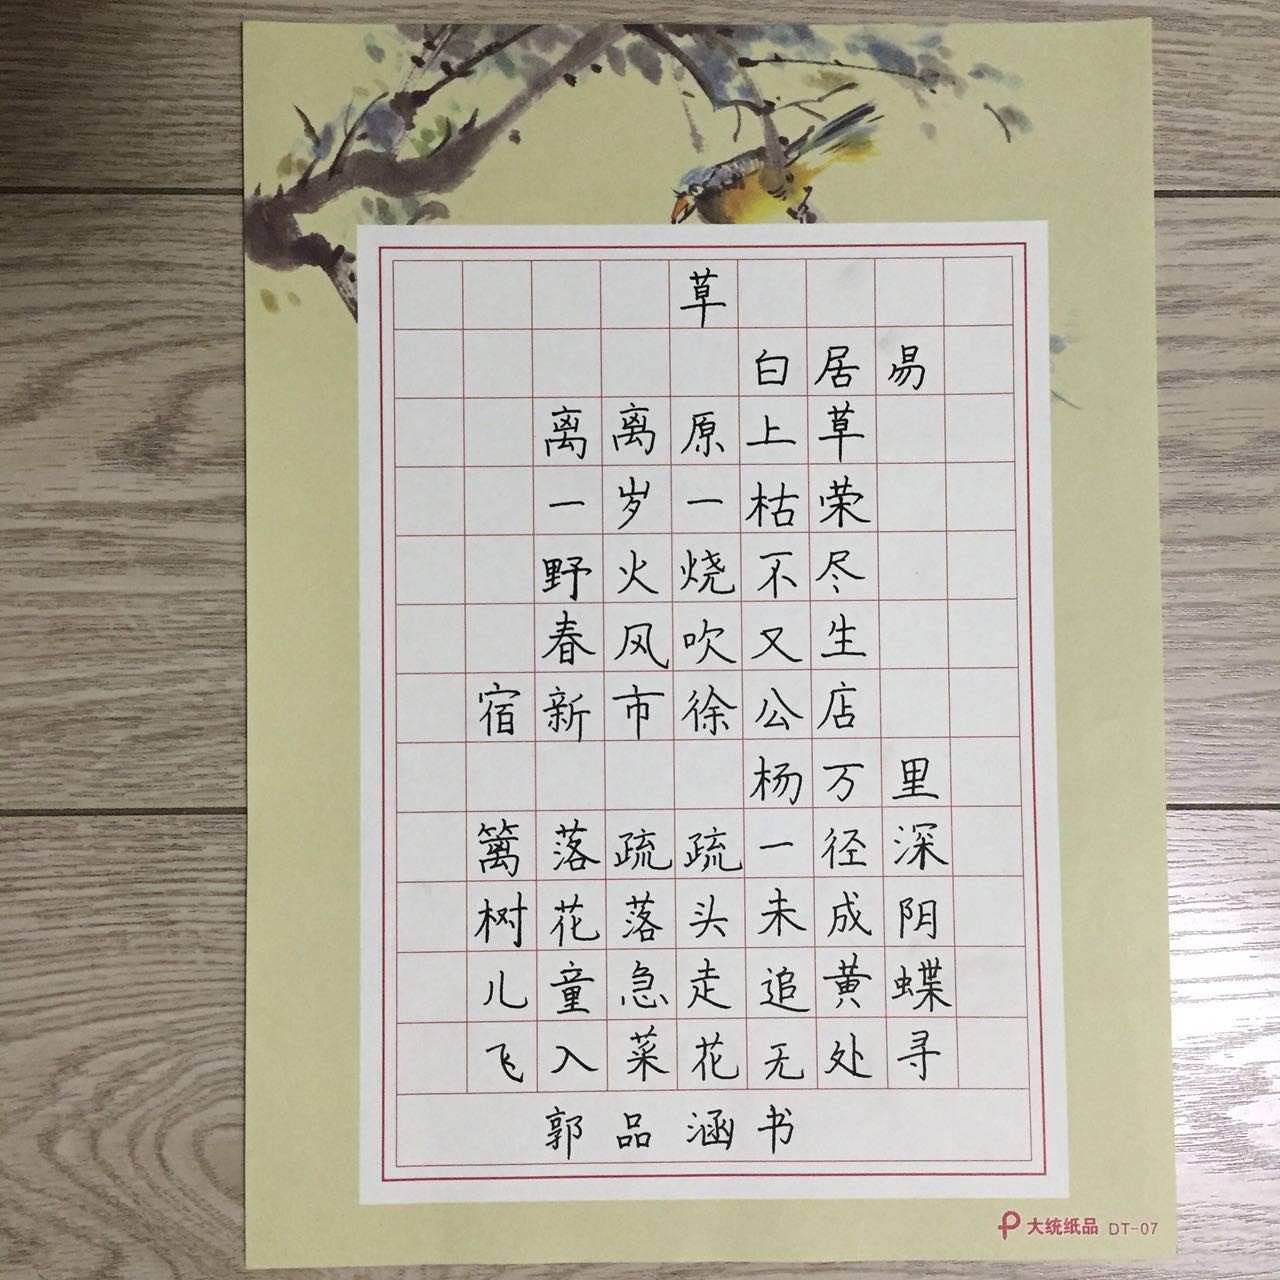 草
白居易
离离原上草
一岁一枯荣
野火烧不尽
春风吹又生
宿新市徐公店
杨万里
篱落疏疏一径深
树花落头未成阴
儿童急走追黄蝶
飞入菜花无处寻
郭品涵书
大统纸品 DT-07